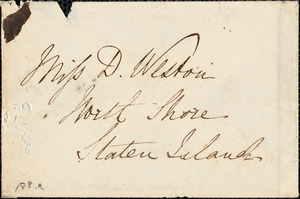 Miss D. Weston
North Shore
Staten Island